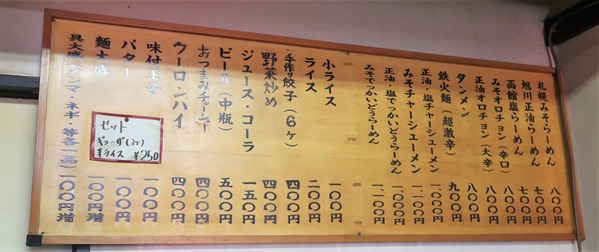 札幌みそらーめん 八〇〇円
旭川正油らーめん 七〇〇円
函館塩らーめん 七〇〇円
みそオロチョン(辛口) 八〇〇円
正油オロチョン(大辛) 八〇〇円
タンメン 八〇〇円
鉄火麺(超激辛) 九〇〇円
正油・塩チャーシューメン
みそチャーシューメン
正油・塩でっかいどうらーめん
みそでっかいどうらーめん
小ライス 一〇〇円
ライス 二〇〇円
手作り餃子(6ヶ) 四〇〇円
野菜炒め 四〇〇円
ジュース・コーラ 一五〇円
ビール(中瓶) 五〇〇円
おつまみチャーシュー 四〇〇円
ウーロンハイ 四〇〇円
味付玉子 一〇〇円
バター 一〇〇円
麺大盛 一〇〇円増
具大盛(メンマ・ネギ・等各一品) 一〇〇円増
セット
ギョーザ(3ヶ)
半ライス ¥250